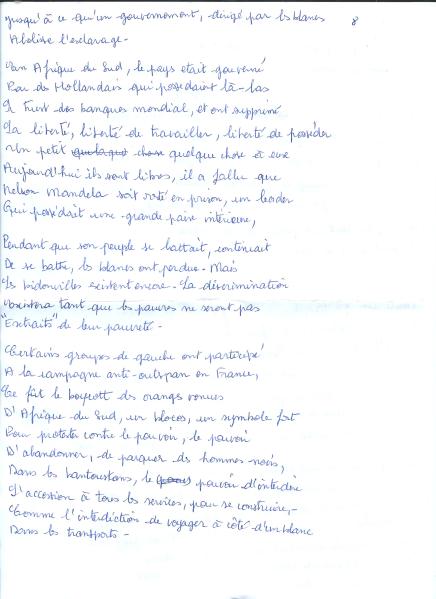 jusqu'à ce qu'un gouvernement, dirigé par les blancs 8
Abolisse l'esclavage -
En Afrique du Sud, le pays etait gouverné
Par des Hollandais qui possedaient là-bas
Le trust des banques mondial, et ont supprimé
La liberté, liberté de travailler, liberté de posséder
Un petit quelque chose à eux
Aujourd'hui ils sont libres, il a fallu que
Nelson Mandela soit resté en prison, un leader
Qui possédait une grande paix intérieure,
Pendant que son peuple se battait, continuait
De se battre, les blancs ont perdue - Mais
Les bidonvilles existent encore - La discrimination
existera tant que les pauvres ne seront pas
"Extraits" de leur pauvreté -
Certains groupes de gauche ont participé
A la campagne anti-outspan en France,
Ce fût le boycott des oranges venues
D'Afrique du Sud, un blocos, un symbole fort
Pour protester contre le pouvoir, le pouvoir
D'abandonner, de parquer des hommes noirs,
Dans les bantoustans, le pouvoir d'interdire
L'accession à tous les services, pour se construire, -
Comme l'interdiction de voyager à côté d'un blanc
Dans les transports -